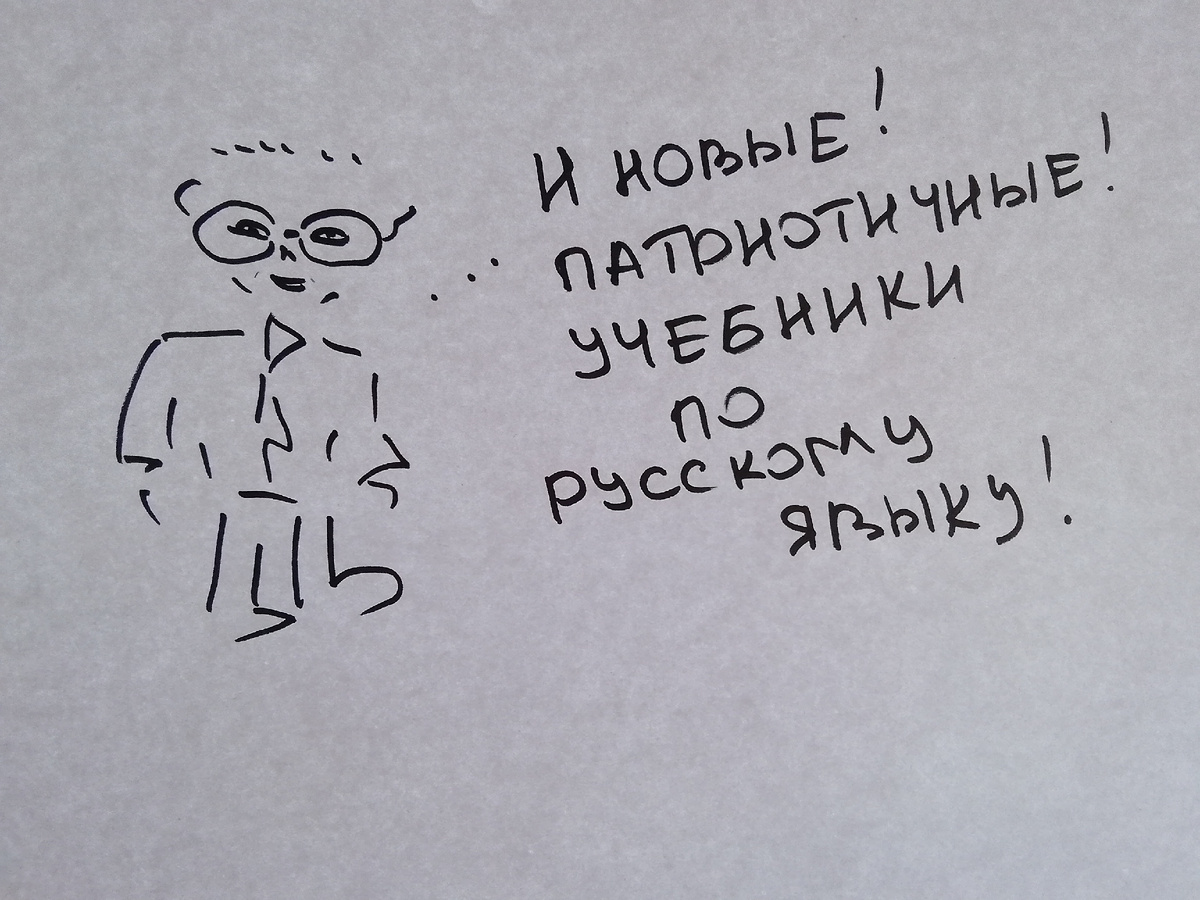 И НОВЫЕ!
ПАТРИОТИЧНЫЕ!
УЧЕБНИКИ
ПО
РУССКОМУ
ЯЗЫКУ!